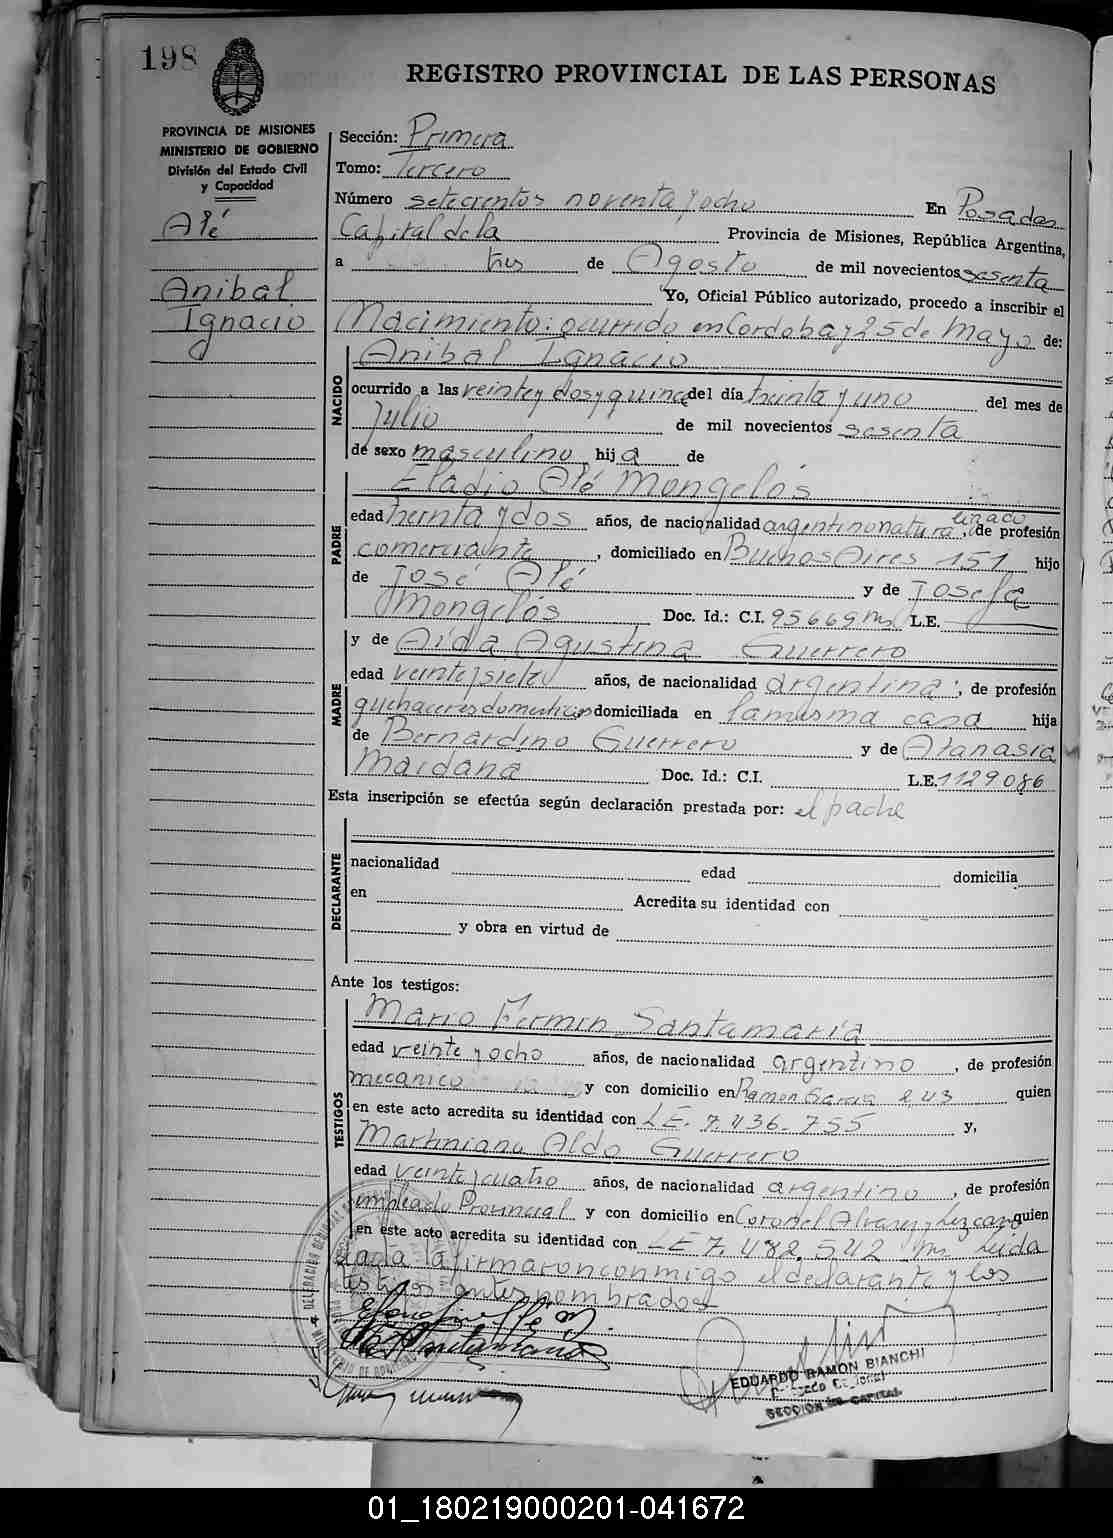 198
REGISTRO PROVINCIAL DE LAS PERSONAS
PROVINCIA DE MISIONES
MINISTERIO DE GOBIERNO
División del Estado Civil
y Capacidad
Alé
Anibal
Ignacio
Sección: Primera
Tomo: Tercero
Número setecientos noventa y ocho En Posadas
Capital de la Provincia de Misiones, República Argentina,
a tres de Agosto de mil novecientos sesenta
Yo, Oficial Público autorizado, procedo a inscribir el
Nacimiento: ocurrido en Cordoba y 25 de Mayo de:
NACIDO
Anibal Ignacio
ocurrido a las veinte y dos y quince del día treinta y uno del mes de
Julio de mil novecientos sesenta
de sexo masculino hij a de
PADRE
Eladio Alé Mongelós
edad treinta y dos años, de nacionalidad argentino naturalizado, de profesión
comerciante, domiciliado en Buenos Aires 151 hijo
de José Alé y de Josefa
Mongelós Doc. Id.: C.I. 95669 L.E.
MADRE
y de Aida Agustina Guerrero
edad veinte y siete años, de nacionalidad argentina, de profesión
quehaceres domesticos domiciliada en la misma casa hija
de Bernardino Guerrero y de Atanasia
Maidana Doc. Id.: C.I. L.E. 1129.086
Esta inscripción se efectúa según declaración prestada por: el padre
DECLARANTE
nacionalidad edad domicilia
en Acredita su identidad con
y obra en virtud de
Ante los testigos:
TESTIGOS
Mario Fermin Santamaría
edad veinte y ocho años, de nacionalidad argentino, de profesión
mecanico y con domicilio en Ramon Garcia 243 quien
en este acto acredita su identidad con L.E. 7.436.755 y,
Martiniano Aldo Guerrero
edad veinte y cuatro años, de nacionalidad argentino, de profesión
empleado Provincial y con domicilio en Coronel Alvarez y Lezcano quien
en este acto acredita su identidad con LE 7.482.542 Leida
el acta la firmaron conmigo el declarante y los
testigos antes nombrados
EDUARDO RAMON BIANCHI
SECCION CAPITAL
01_180219000201-041672